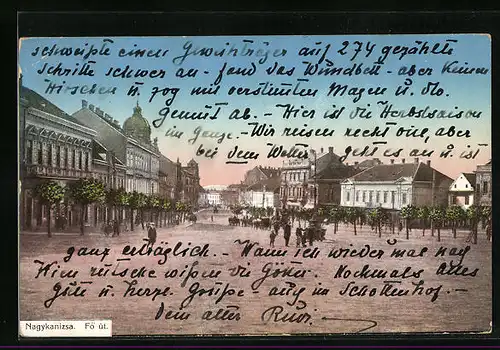 schweißte einen Geweihträger auf 274 gezählte
Schritte schwer an - fand das Wundbett - aber keinen
Hirschen u zog mit verstimten Magen u. dto.
Gemüt ab. - Hier ist die Herbstsaison
im Gange. - Wir reisen recht oue, aber
bei dem Wetter geht es an u ist
ganz erträglich. - Wann ich wieder mal nach
Wien rutsche wißen die Götter. Nochmals alles
Gute u. herzl Grüße - auf im Schottenhof. -
Dem alter Rudi
Nagykanizsa. Fő út.